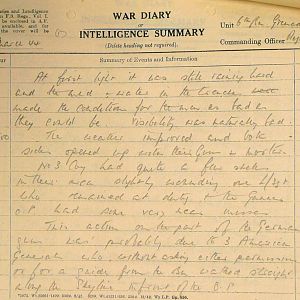 and Intelligence
F.S. Regs., Vol. I.
be enclosed in A.F.
available, and for
cover will
WAR DIARY
or
INTELLIGENCE SUMMARY
(Delete heading not required).
Unit 6th Bn
Commanding Officer
Summary of Events and Information
At first light it was still raining hard
and the mud & water in the trenches
made the conditions for the men as bad as
they could be. Visibility was naturally bad.
The weather improved and both
sides opened up with their Guns & mortars
No 3 Coy had quite a few shells
in their area slightly wounding one L/Sgt
who remained at duty & the Gunner
O.P. had some very near misses
This action on the part of the German
guns was probably due to 3 American
Generals who, without asking either permission
or for a guide from the Bn walked straight
along the skyline in front of the O.P.